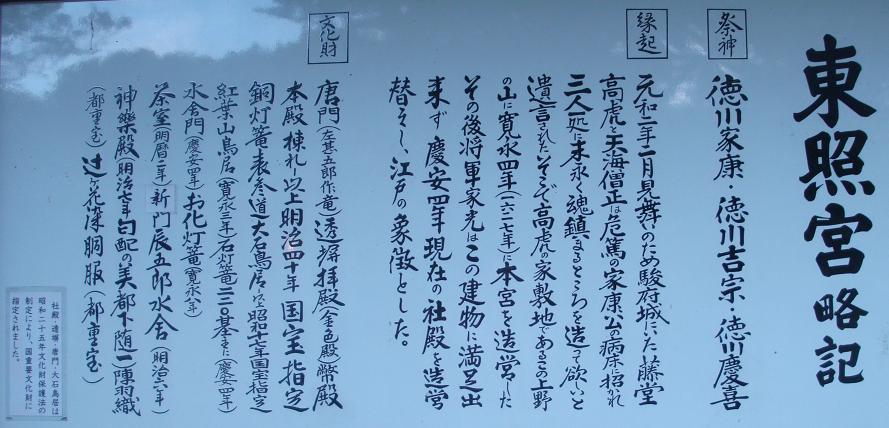 東照宮略記
祭神
徳川家康・徳川吉宗・徳川慶喜
縁起
元和二年二月見舞いのため駿府城にいた藤堂
高虎と天海僧正は危篤の家康公の病床に招かれ
三人一処に末永く魂鎮まるところを造って欲しいと
遺言された。そこで高虎の家敷地であるこの上野
の山に寛永四年(一六二七年)に本宮を造営した
その後将軍家光はこの建物に満足出
来ず慶安四年現在の社殿を造営
替えし、江戸の象徴とした。
文化財
唐門(左甚五郎作竜)透塀拝殿(金色殿)幣殿
本殿棟札以上明治四十年国宝指定
銅灯篭表参道大石鳥居以上昭和十七年国宝指定
紅葉山鳥居(寛永三年)石灯篭二三〇基主に(慶安四年)
水舎門(慶安四年)お化灯篭(寛永八年)
茶室(明暦二年)新門辰五郎水舎(明治六年)
神樂殿(明治七年)勾配の美都下随一陣羽織
(都重宝)辻ヶ花染胴服(都重宝)
社殿・透塀・唐門・大石鳥居は
昭和二十五年文化財保護法の
制定により、国重要文化財に
指定されました。